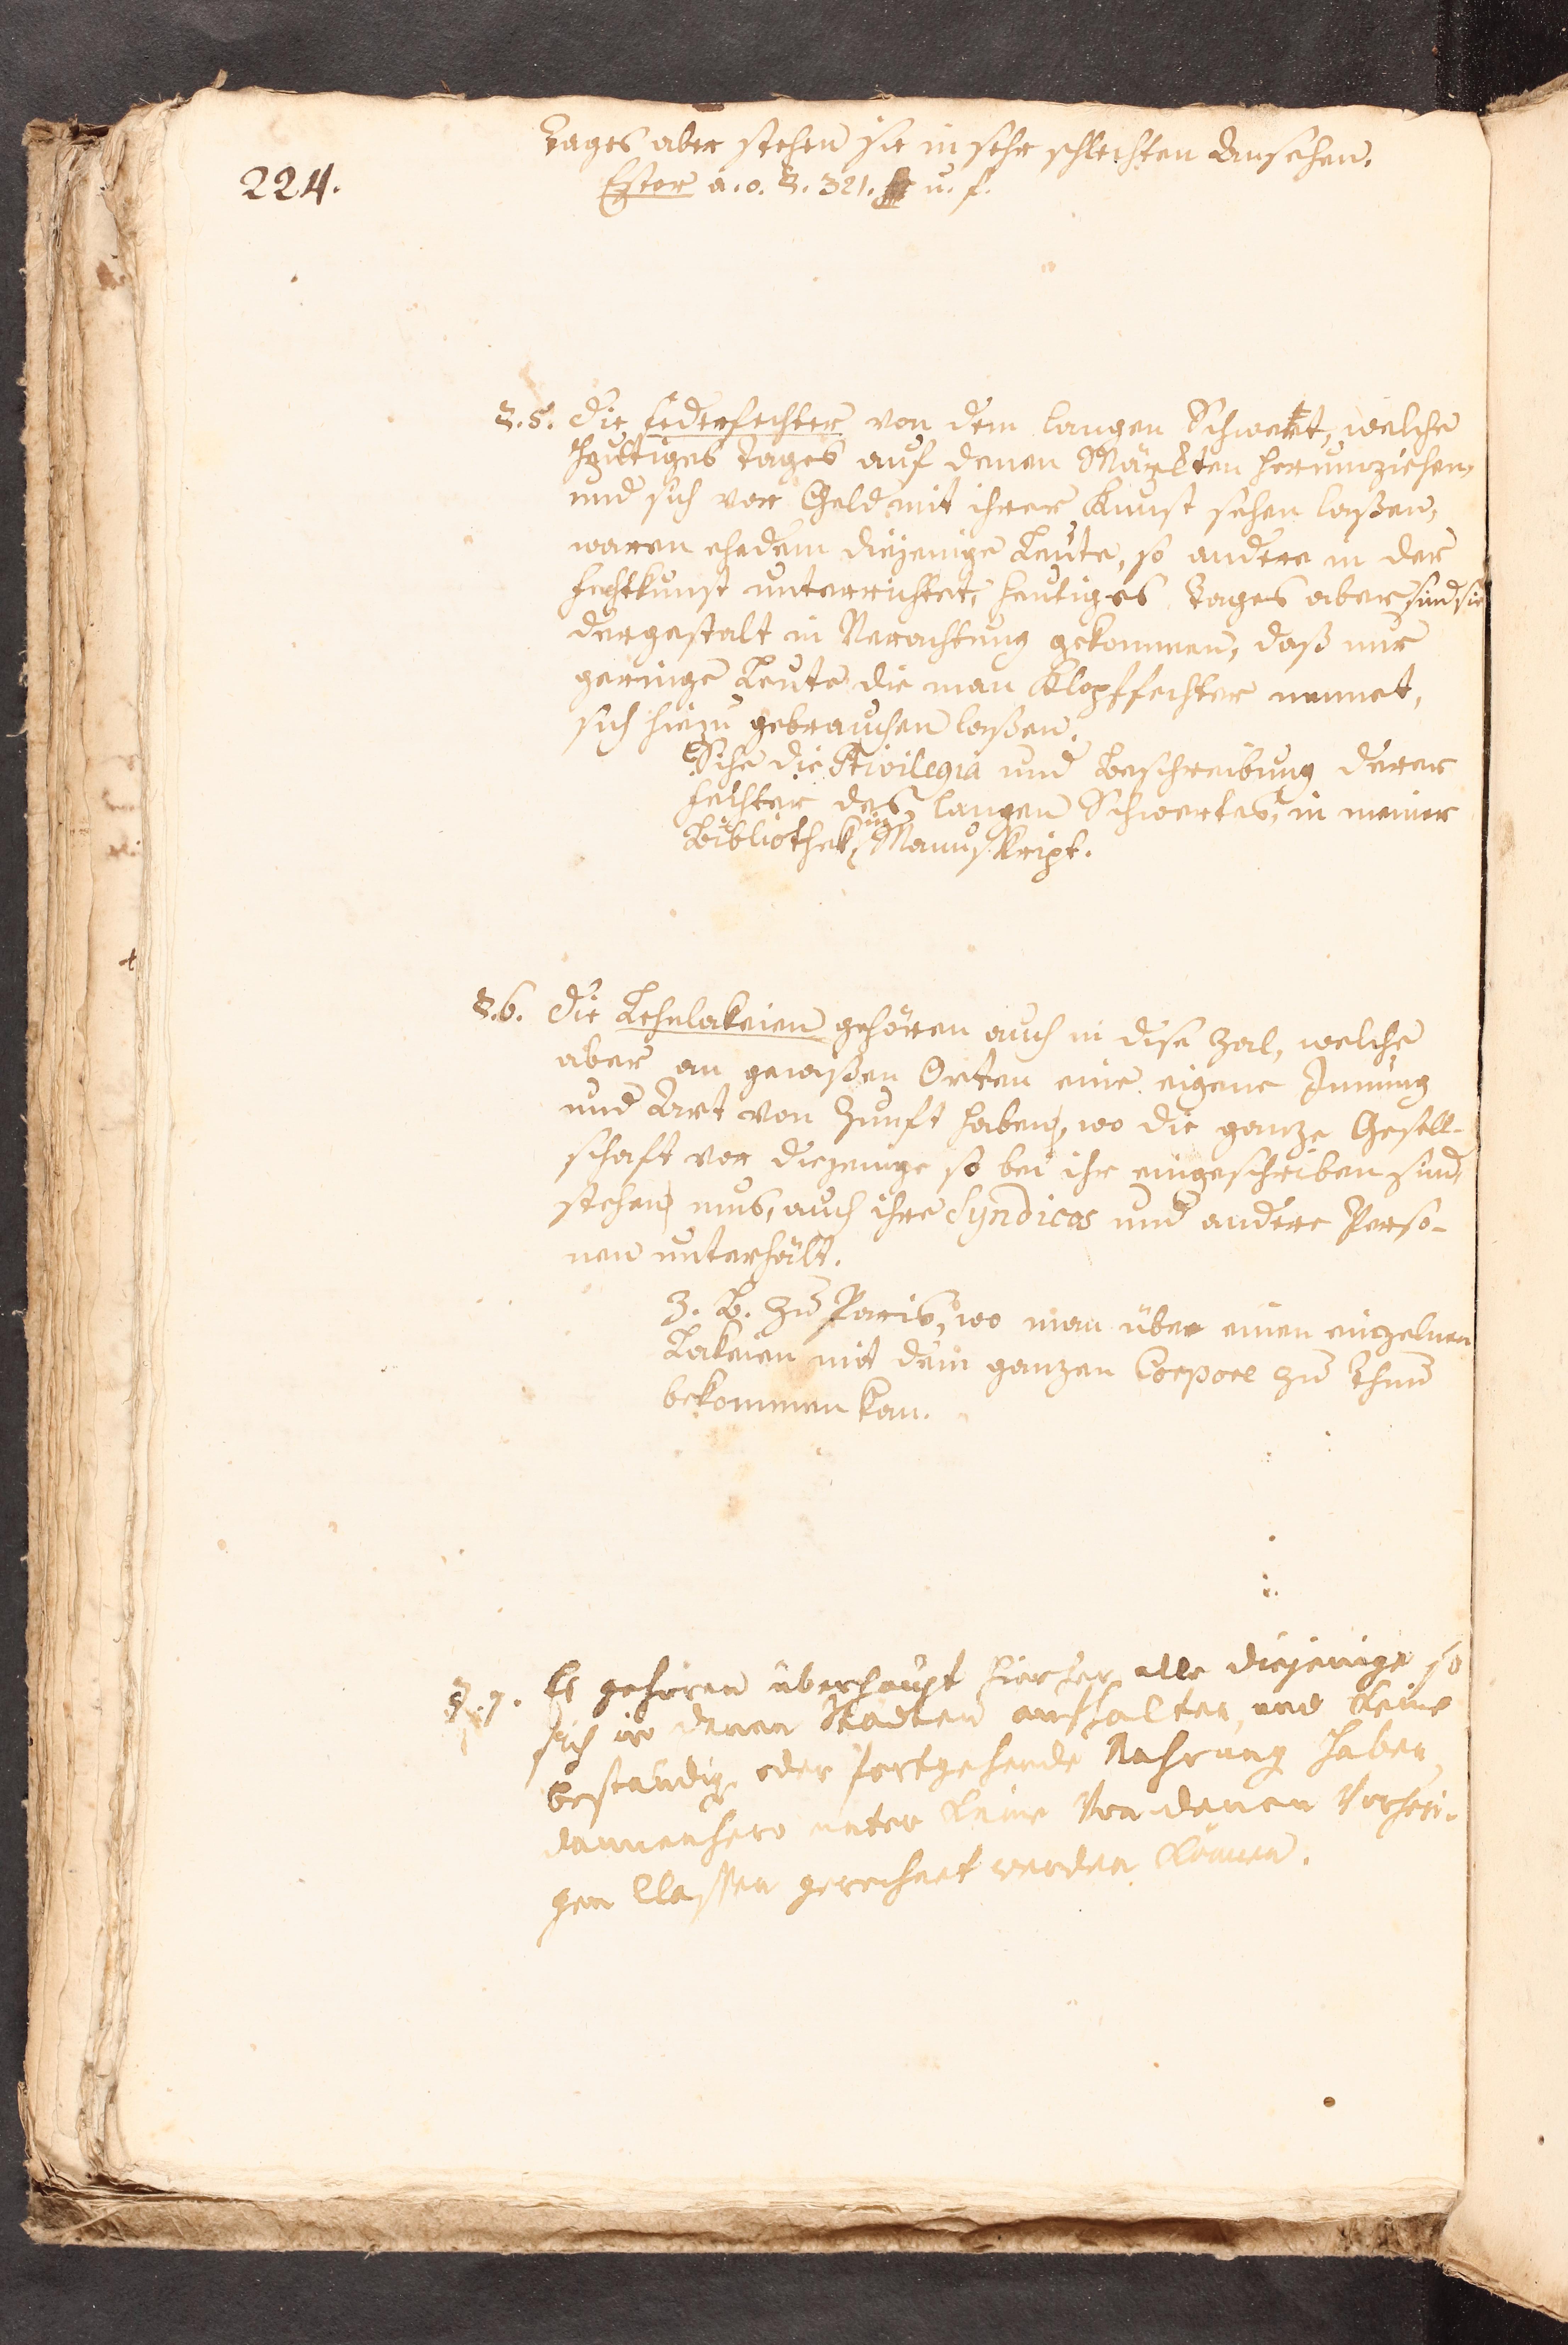 224.
Tages aber stehen sie in sehr schlechten Ansehen.
Estor a. o. §. 321. u. f.
§. 5. Die Federfechter von dem langen Schwert, welche
heutiges Tages auf denen Märkten herumziehen,
und sich vor Geld mit ihrer Kunst sehen laßen,
waren ehedem diejenige Leute, so andere in der
Fechtkunst unterrichtet, heutiges Tages aber sind sie
dergestalt in Verachtung gekommen, daß nur
geringe Leute die man Klopffechter nennet,
sich hiezu gebrauchen laßen.
Sihe die Privilegia und Beschreibung derer
Fechter des langen Schwertes, in meiner
Bibliothek im Manuskript.
§. 6. Die Lehnlakeien gehören auch in dise Zal, welche
aber an gewißen Orten eine eigene Innung
und Art von Zunft haben, wo die ganze Gesell-
schaft vor diejenige so bei ihr eingeschriben sind,
stehen mus, auch ihre Syndicos und andere Perso-
nen unterhält.
Z. B. zu Paris, wo man über einen einzelnen
Lakeien mit dem ganzen Corpore zu Thun
bekommen kan.
§. 7. Es gehören überhaupt hierher alle diejenige so
sich in denen Stadten aufhalten, und keine
beständige oder fortgehende Nahrung haben,
dannenhero unter keine von denen vorheri-
gen Classen gerechnet werden können.